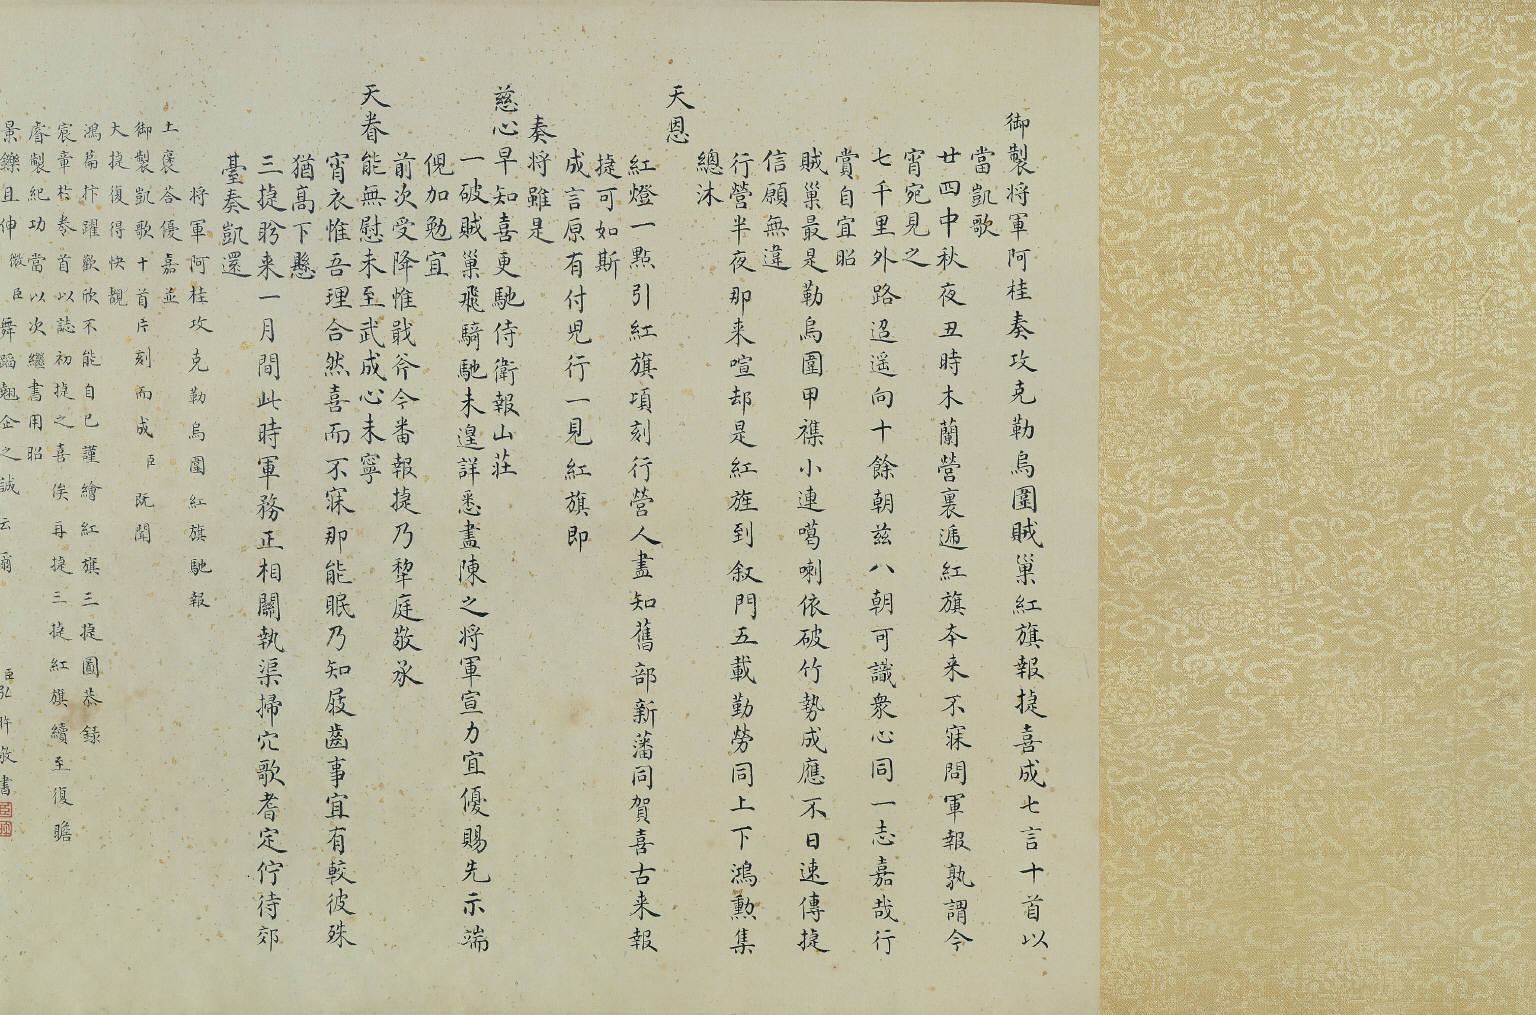 御製將軍阿桂奏攻克勒烏圍賊巢紅旗報捷喜成七言十首以
當凱歌
廿四中秋夜丑時木蘭營裏遞紅旗本來不寐問軍報孰謂今
宵宛見之
七千里外路迢遥向十餘朝兹八朝可識衆心同一志嘉哉行
賞自宜昭
賊巢最是勒烏圍甲襍小連噶喇依破竹勢成應不日速傳捷
信願無違
行營半夜那来喧却是紅旌到叙門五載勤勞同上下鴻勲集
總沐
天恩
紅燈一點引紅旗項刻行營人盡知舊部新藩同賀喜古来報
捷可如斯
成言原有付兕行一見紅旗即
奏将雖是
慈心早知喜更馳侍衛報山莊
一破賊巢飛騎馳未遑詳悉盡陳之将軍宣力宜優賜先示端
倪加勉宜
前次受降惟戢斧今番報捷乃犂庭敬承
天眷能無慰未至武成心未寧
宵衣惟吾理合然喜而不寐那能眠乃知屐齒事宜有較彼殊
猶髙下懸
三捷盼来一月間此時軍務正相關執渠掃穴歌耆定佇待郊
臺奏凱還
将軍阿桂攻克勒烏圍紅旗馳報
上褒答優嘉並
御製凱歌十首片刻而成臣既聞
大捷復得快覩
鴻篇抃躍歡欣不能自已謹繪紅旗三捷圖恭録
宸章於卷首以誌初捷之喜俟再捷三捷紅旗續至復瞻
睿製紀功當以次繼書用昭
景鑠且伸微臣舞蹈翹企之誠云爾 臣弘旿敬書